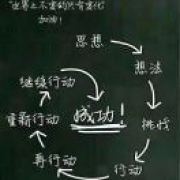 "世界上不变的只有变化"
加油!
思想
想法
挑战
行动
再行动
重新行动
继续行动
成功!